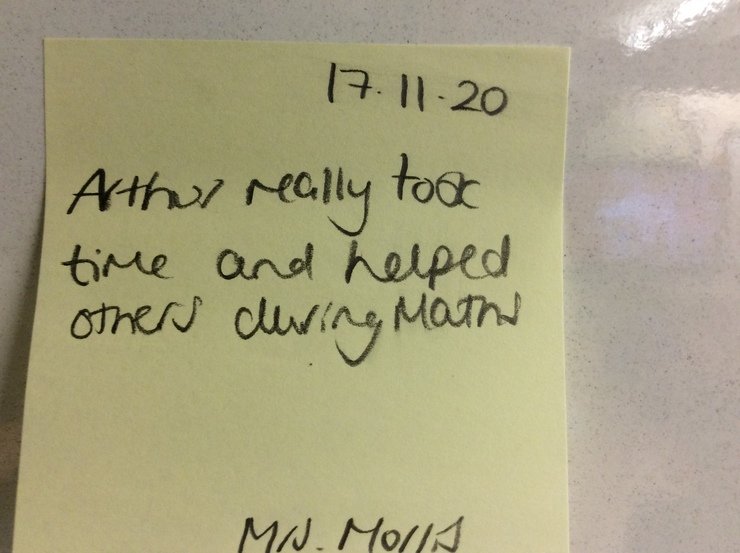 17.11.20
Arthur really took
time and helped
others during Maths
Mrs.